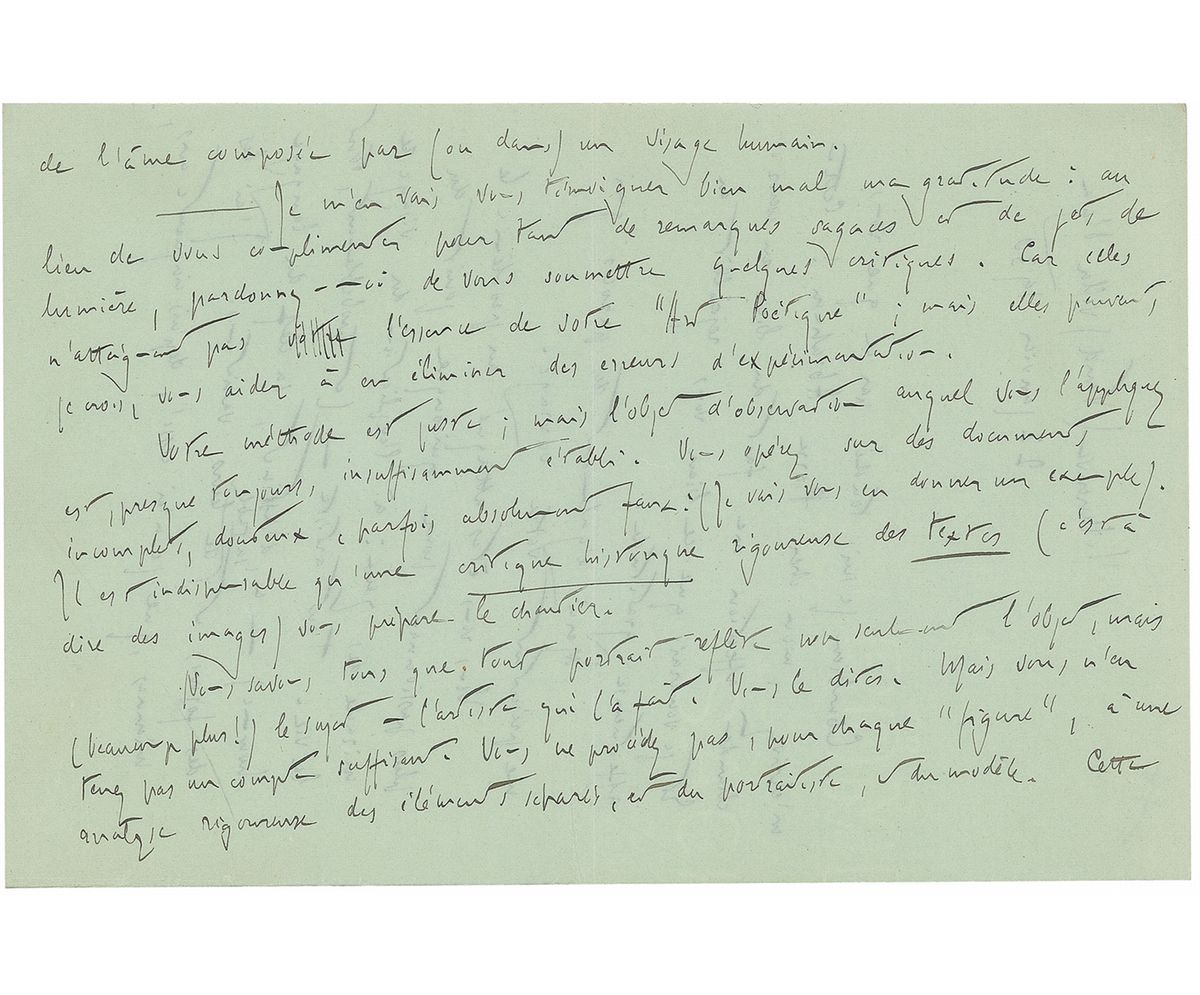 de l'âme composée par (ou dans) un visage humain.
Je m'en vais vous témoigner bien mal ma gratitude : au
lieu de vous complimenter pour tant de remarques sagaces et de jets de
lumière, pardonnez-moi de vous soumettre quelques critiques. Car elles
n'atteignent pas l'essence de votre "Art Poétique" ; mais elles peuvent,
je crois, vous aider à en éliminer des erreurs d'expérimentation.
Votre méthode est juste ; mais l'objet d'observation auquel vous l'appliquez
est, presque toujours, insuffisamment établi. Vous opérez sur des documents
incomplets, douteux, parfois absolument faux : (Je vais vous en donner un exemple).
Il est indispensable qu'une critique historique rigoureuse des textes (c'est à
dire des images) vous prépare le chantier.
Nous savons tous que tout portrait reflète non seulement l'objet, mais
(beaucoup plus!) le sujet - l'artiste qui l'a fait. Vous le dites. Mais vous n'en
tenez pas un compte suffisant. Vous ne procédez pas, pour chaque "figure", à une
analyse rigoureuse des éléments séparés, et du portraitiste, et du modèle. Cette